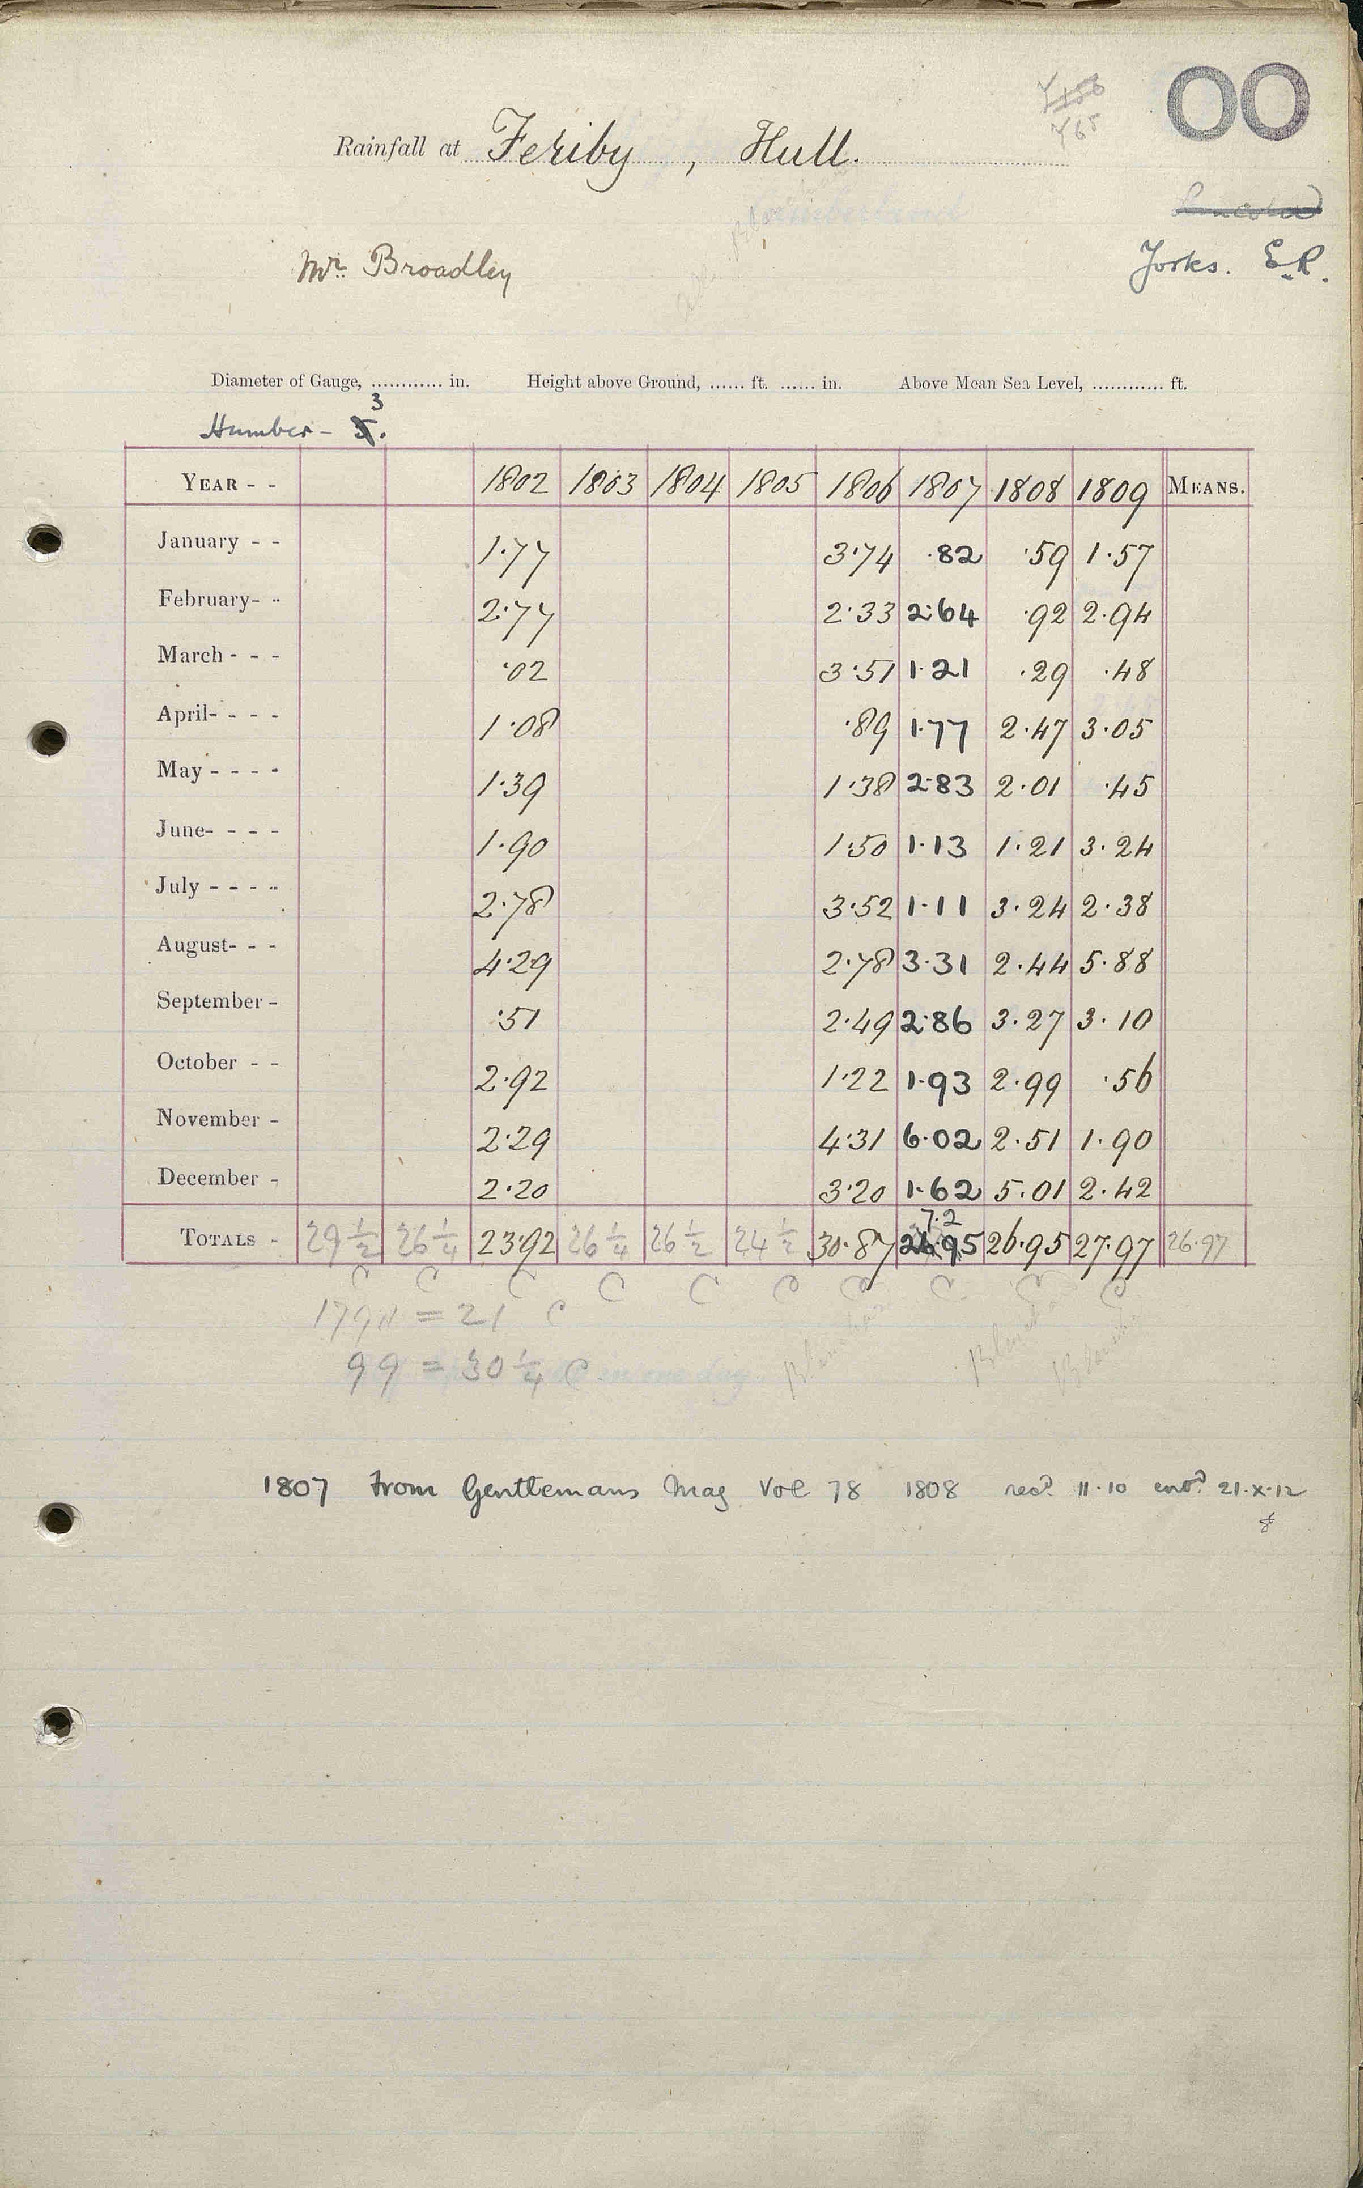 OO
Y65
Rainfall at Feriby, Hull.
Lincoln
Mr. Broadley
Yorks. E.R.
Diameter of Gauge, ............ in. Height above Ground, ...... ft. ...... in. Above Mean Sea Level, ............ ft.
3
Humber - 5.
YEAR - - 1802 1803 1804 1805 1806 1807 1808 1809 MEANS.
January - - 1.77 3.74 .82 .59 1.57
February- - 2.77 2.33 2.64 .92 2.94
March - - - .02 3.51 1.21 .29 .48
April- - - - 1.08 .89 1.77 2.47 3.05
May - - - - 1.39 1.38 2.83 2.01 .45
June- - - - 1.90 1.50 1.13 1.21 3.24
July - - - - 2.78 3.52 1.11 3.24 2.38
August- - - 4.29 2.78 3.31 2.44 5.88
September - .51 2.49 2.86 3.27 3.10
October - - 2.92 1.22 1.93 2.99 .56
November - 2.29 4.31 6.02 2.51 1.90
December - 2.20 3.20 1.62 5.01 2.42
7.2
TOTALS - 29 1/2 26 1/4 23.92 26 1/4 26 1/2 24 1/2 30.87 26.95 26.95 27.97 26.97
C C C C C C C C C C
= 21 C
99 = 30 1/4 C in one day.
1807 From Gentlemans Mag Vol 78 1808 recd. 11.10 entd. 21.x.12